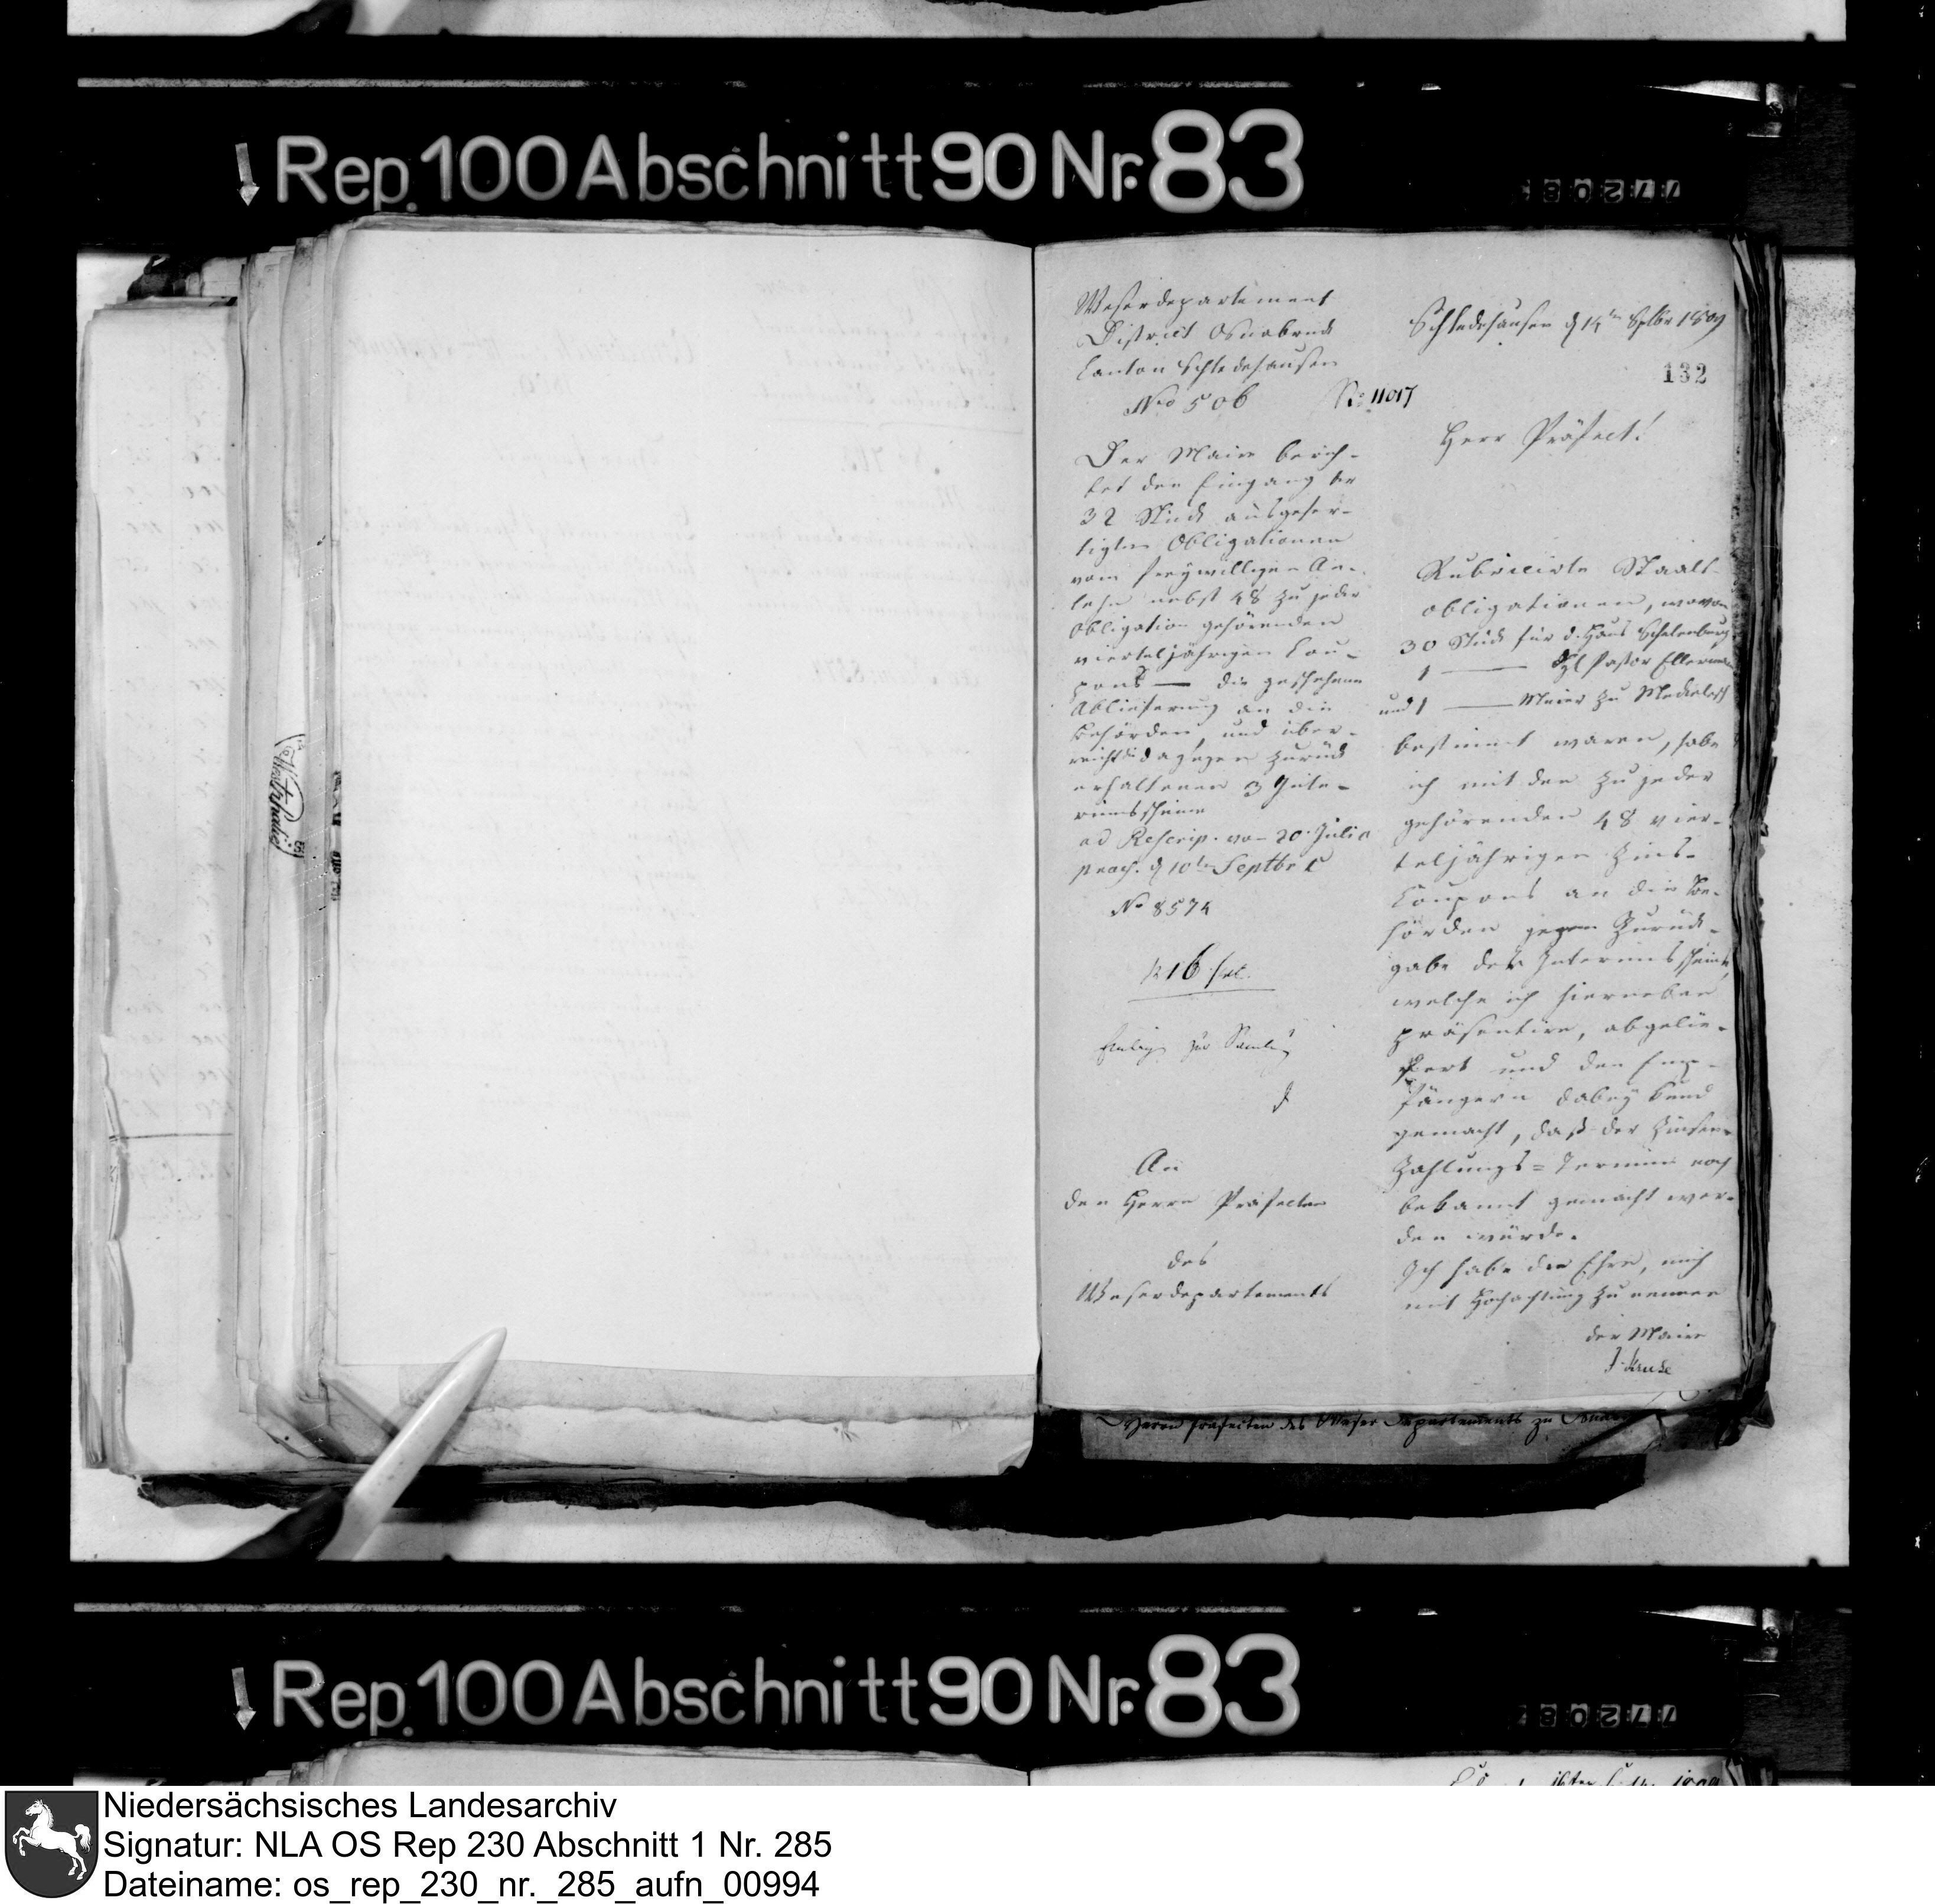 Rep. 100 Abschnitt 90 Nr. 83
Weserdepartement
District Osnabrück
Canton Schledehausen
Nro 506
No 11017
Der Maire berich-
tet den Eingang der
32 Stück ausgefer-
tigten Obligationen
vom freywilligen An-
lehn nebst 48 zu jeder
Obligation gehörenden
vierteljährigen Cou-
pons — die geschehene
Ablieferung an die
Behörden, und über-
reicht die dagegen zurück
erhaltenen 3 Inte-
rimsscheine
ad Rescrip. vom 20. Julii
praes. d 10ten Septbr
No 8574
An
den Herrn Präfecten
des
Weserdepartements
Schledehausen d 14ten Sptbr 1809
132
Herr Präfect!
Rubricirte Staats-
obligationen, wovon
30 Stück für d. Haus Schelenburg
1 — Pastor Ellerman
und 1 — Meier zu
bestimmt waren, habe
ich mit den zu jeder
gehörenden 48 vier-
teljährigen Zins-
Coupons an die Be-
hörden gegen Zurück-
gabe der Interimsscheine,
welche ich hierneben
präsentire, abgelie-
fert und den Emp-
fängern dabey kund
gemacht, daß der Zinsen-
Zahlungs=Termin noch
bekannt gemacht wer-
den würde.
Ich habe die Ehre, mich
mit Hochachtung zu nennen
der Maire
J. Kruse
Herrn Präfecten des Weser Departements zu
Rep. 100 Abschnitt 90 Nr. 83
Niedersächsisches Landesarchiv
Signatur: NLA OS Rep 230 Abschnitt 1 Nr. 285
Dateiname: os_rep_230_nr._285_aufn_00994